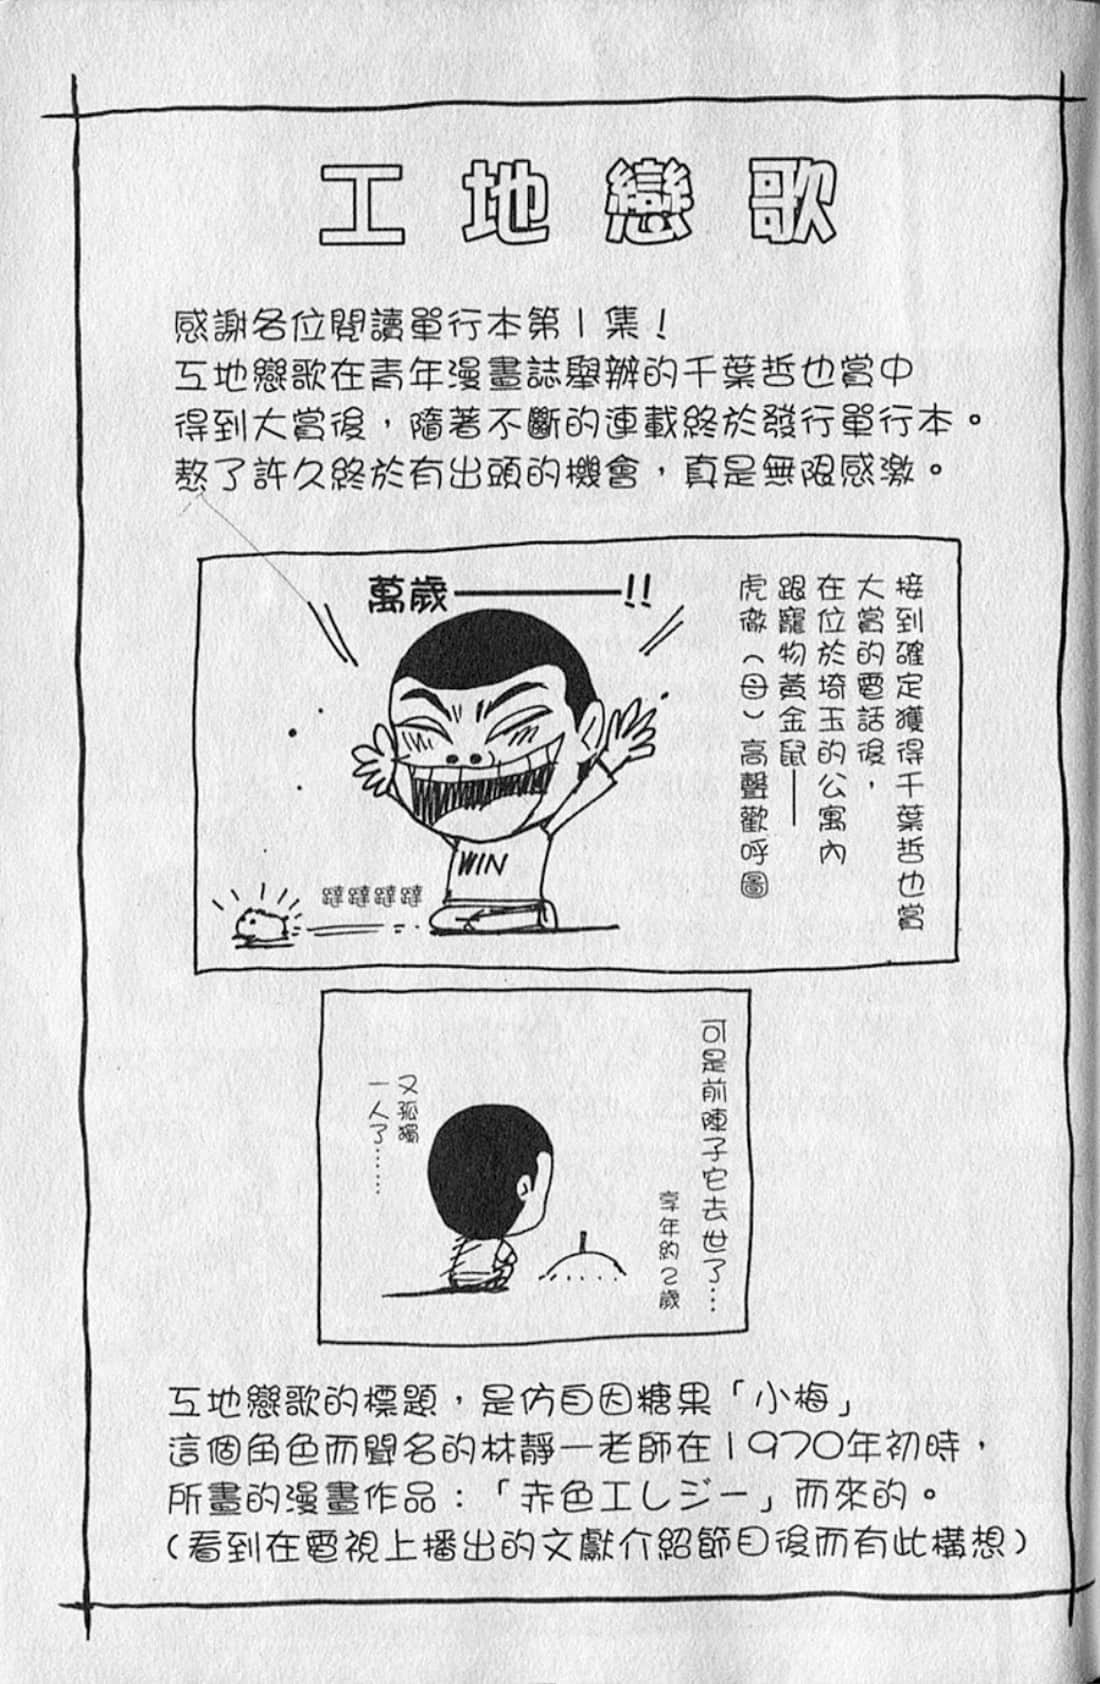 工地戀歌
感謝各位閱讀單行本第1集！
工地戀歌在青年漫畫誌舉辦的千葉哲也賞中
得到大賞後，隨著不斷的連載終於發行單行本。
熬了許久終於有出頭的機會，真是無限感激。
接到確定獲得千葉哲也賞
大賞的電話後，
在位於埼玉的公寓內
跟寵物黃金鼠——
虎徹（母）高聲歡呼圖
萬歲————!!
WIN
躂躂躂躂
可是前陣子它去世了…
享年約2歲
又孤獨
一人了……
工地戀歌的標題，是仿自因糖果「小梅」
這個角色而聞名的林靜一老師在1970年初時，
所畫的漫畫作品：「赤色エレジー」而來的。
(看到在電視上播出的文獻介紹節目後而有此構想)